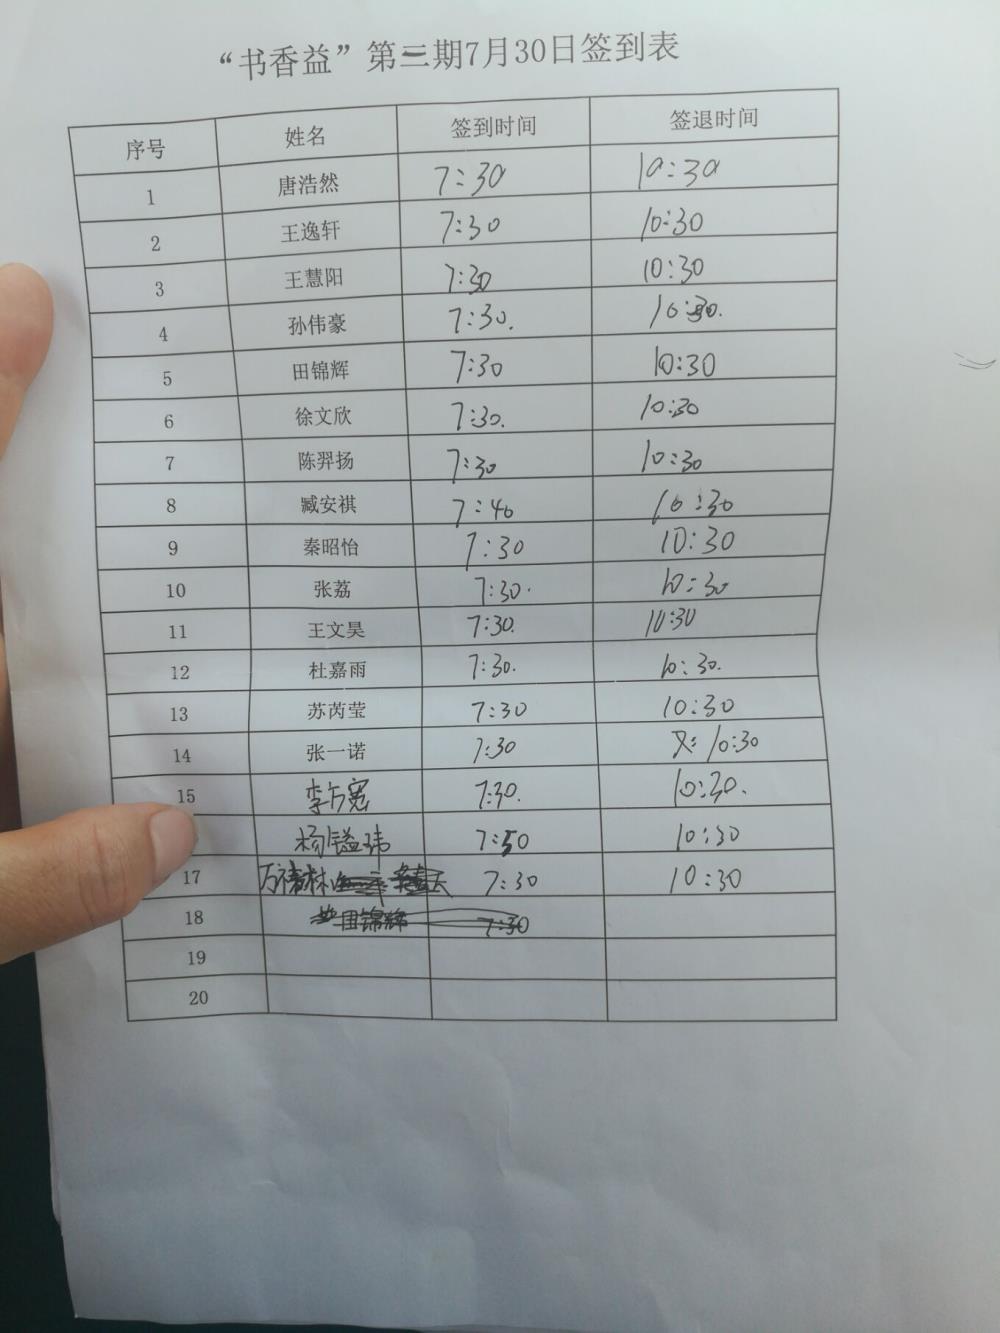 “书香益”第三期7月30日签到表
序号 姓名 签到时间 签退时间
1 唐浩然 7:30 10:30
2 王逸轩 7:30 10:30
3 王慧阳 7:30 10:30
4 孙伟豪 7:30. 10:30.
5 田锦辉 7:30 10:30
6 徐文欣 7:30. 10:30
7 陈羿扬 7:30 10:30
8 臧安祺 7:40 10:30
9 秦昭怡 7:30 10:30
10 张荔 7:30. 10:30
11 王文昊 7:30. 10:30
12 杜嘉雨 7:30. 10:30.
13 苏芮莹 7:30 10:30
14 张一诺 7:30 10:30
15 李 宽 7:30. 10:30.
杨镒玮 7:50 10:30
17 7:30 10:30
18 田锦辉 7:30
19
20